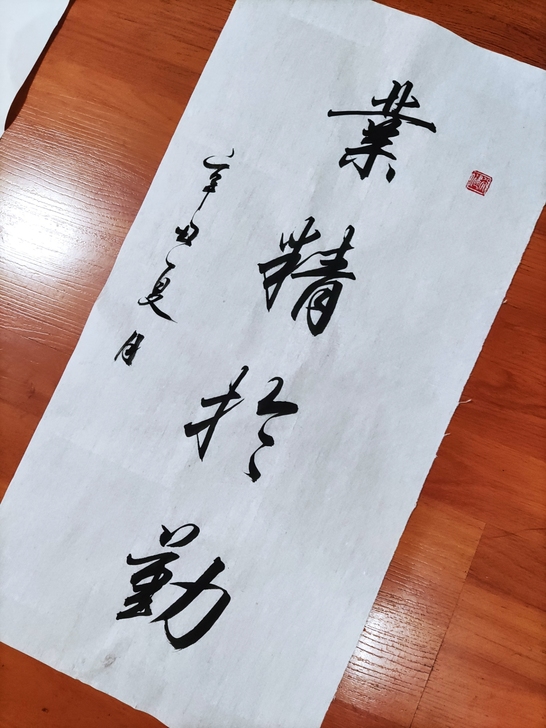 業精於勤
辛丑夏月